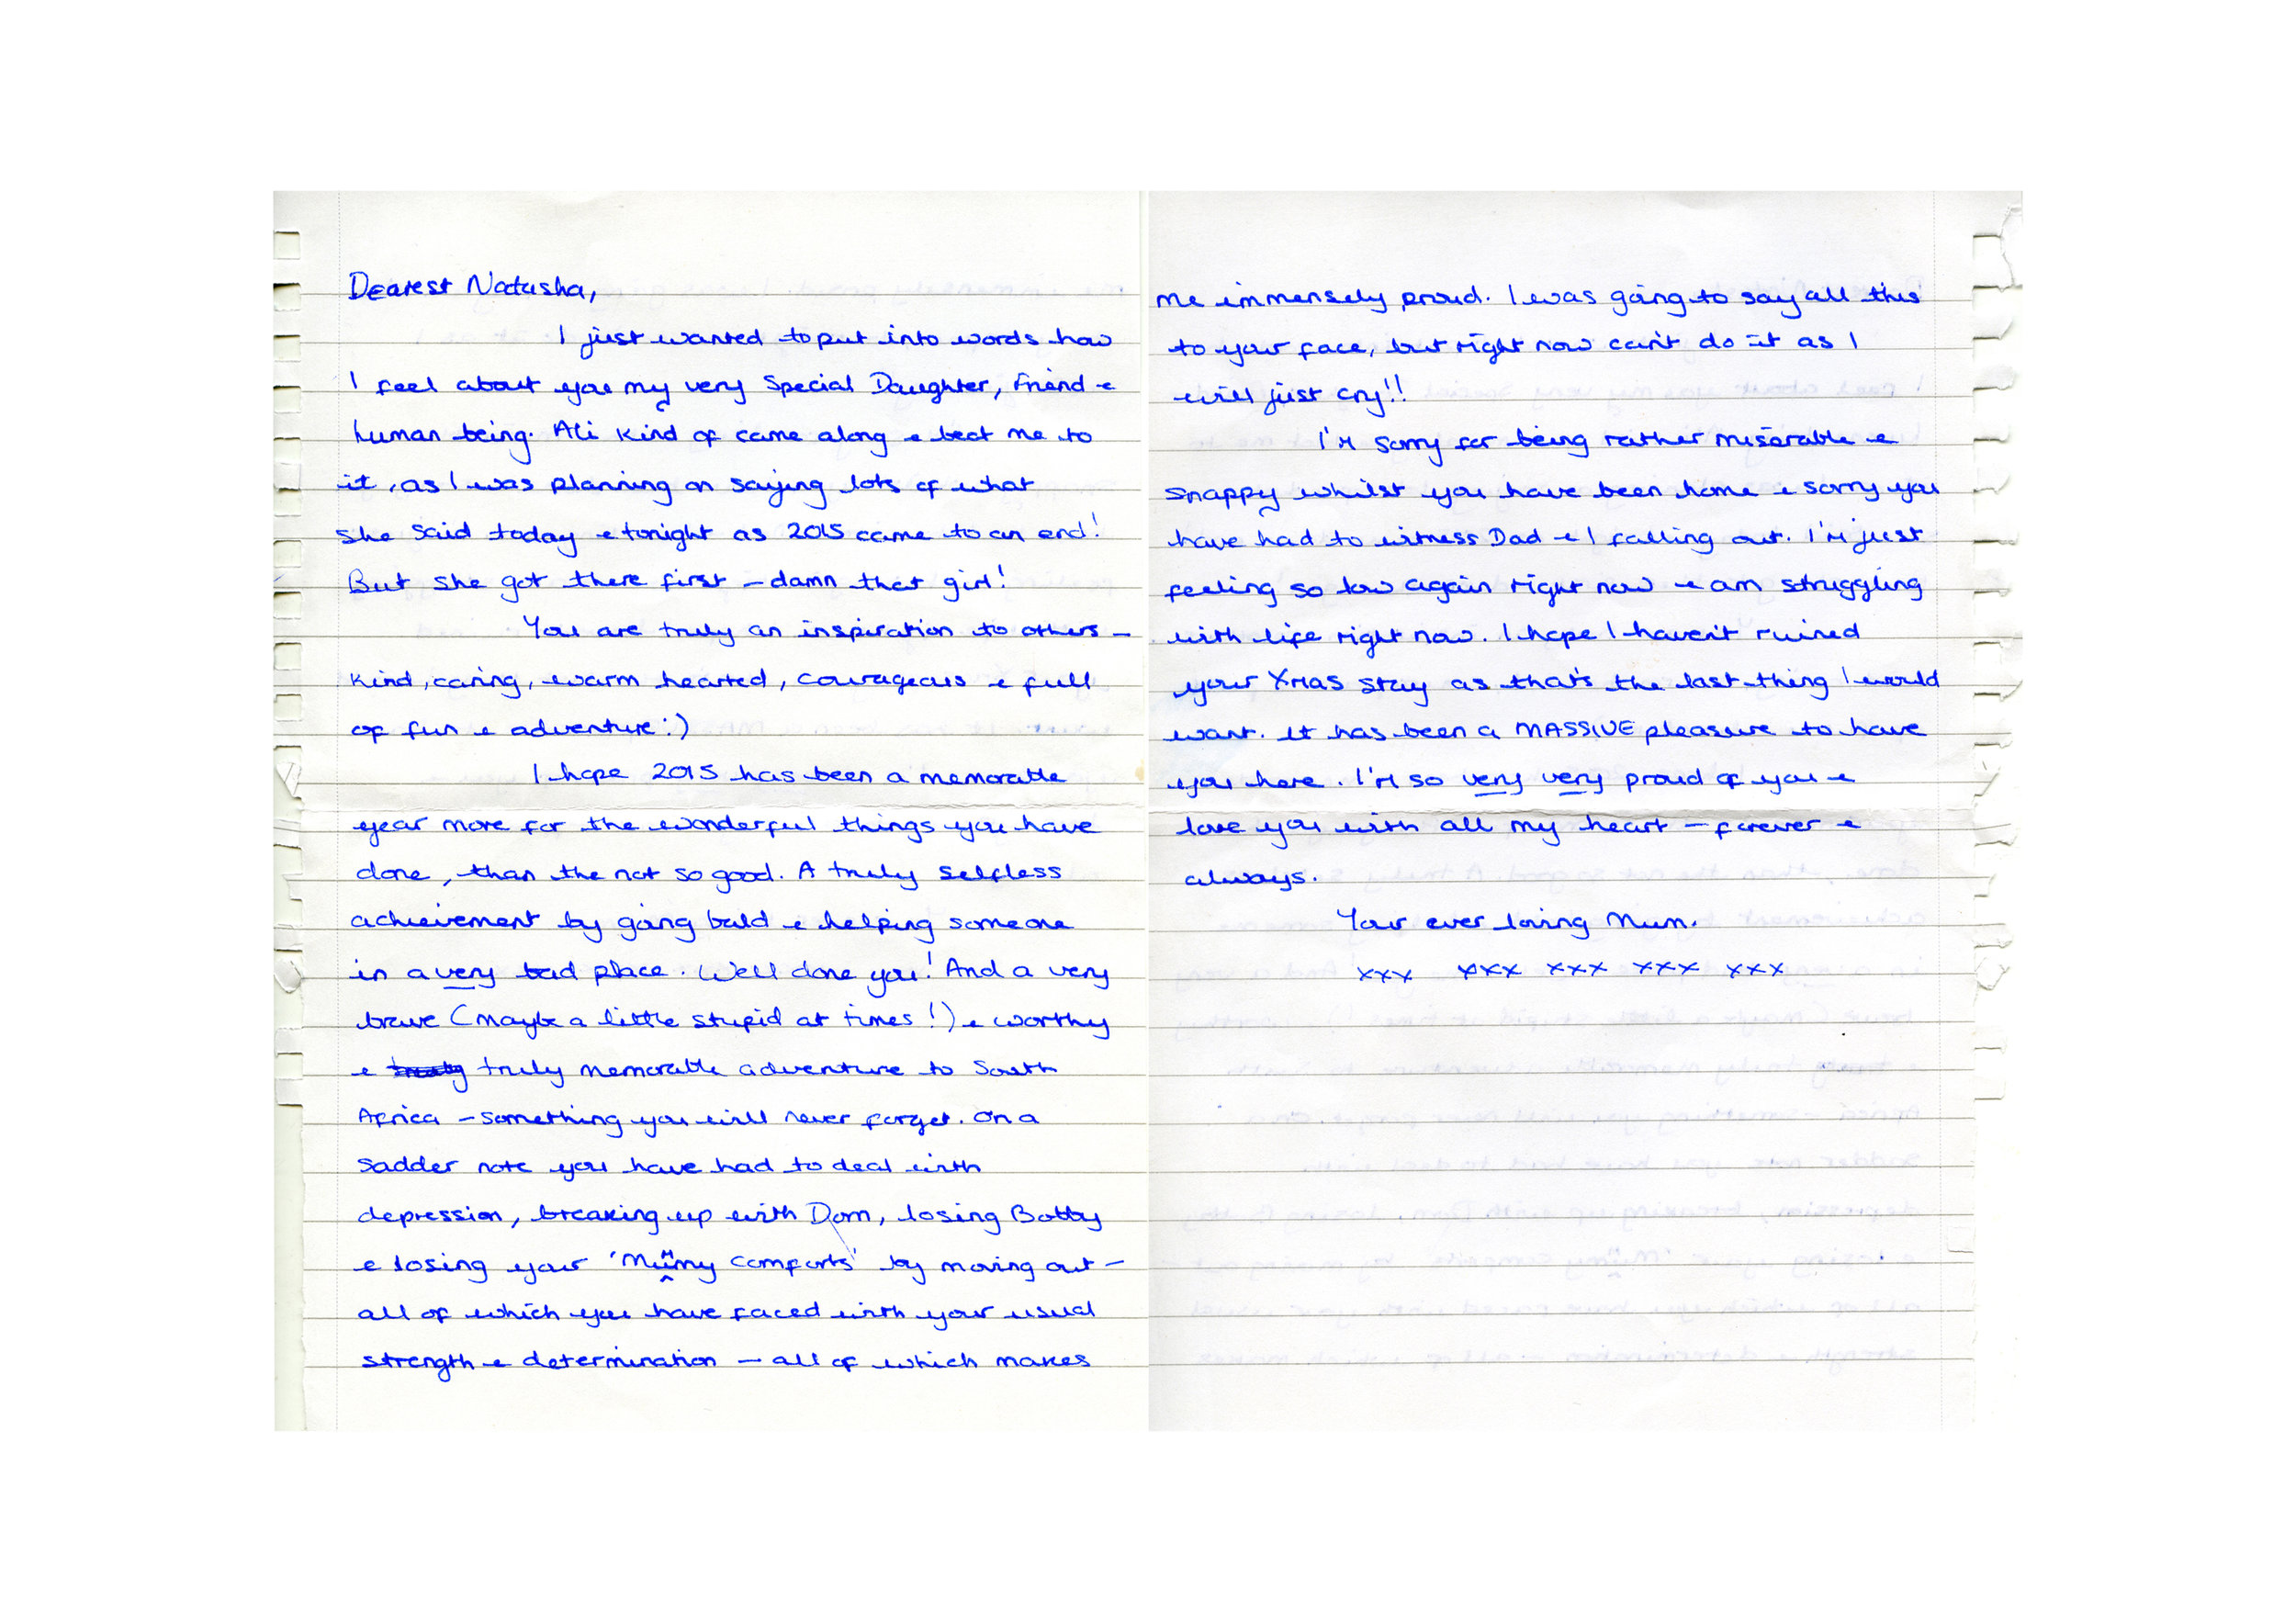 Dearest Natasha,
I just wanted to put into words how
I feel about you my very Special Daughter, Friend &
human being. Ali kind of came along & beat me to
it, as I was planning on saying lots of what
she said today & tonight as 2015 came to an end!
But she got there first - damn that girl!
You are truly an inspiration to others -
kind, caring, warm hearted, courageous & full
of fun & adventure :)
I hope 2015 has been a memorable
year more for the wonderful things you have
done, than the not so good. A truly selfless
achievement by going bald & helping someone
in a very bad place. Well done you! And a very
brave (maybe a little stupid at times!) & worthy
& truly memorable adventure to South
Africa - something you will never forget. On a
sadder note you have had to deal with
depression, breaking up with Dom, losing Bobby
& losing your 'Mummy comforts' by moving out -
all of which you have faced with your usual
strength & determination - all of which makes
me immensely proud. I was going to say all this
to your face, but right now can't do it as I
will just cry!!
I'm sorry for being rather miserable &
snappy whilst you have been home & sorry you
have had to witness Dad & I falling out. I'm just
feeling so low again right now & am struggling
with life right now. I hope I haven't ruined
your Xmas stay as that's the last thing I would
want. It has been a MASSIVE pleasure to have
you here. I'm so very very proud of you &
love you with all my heart - forever &
always.
Your ever loving Mum.
xxx xxx xxx xxx xxx